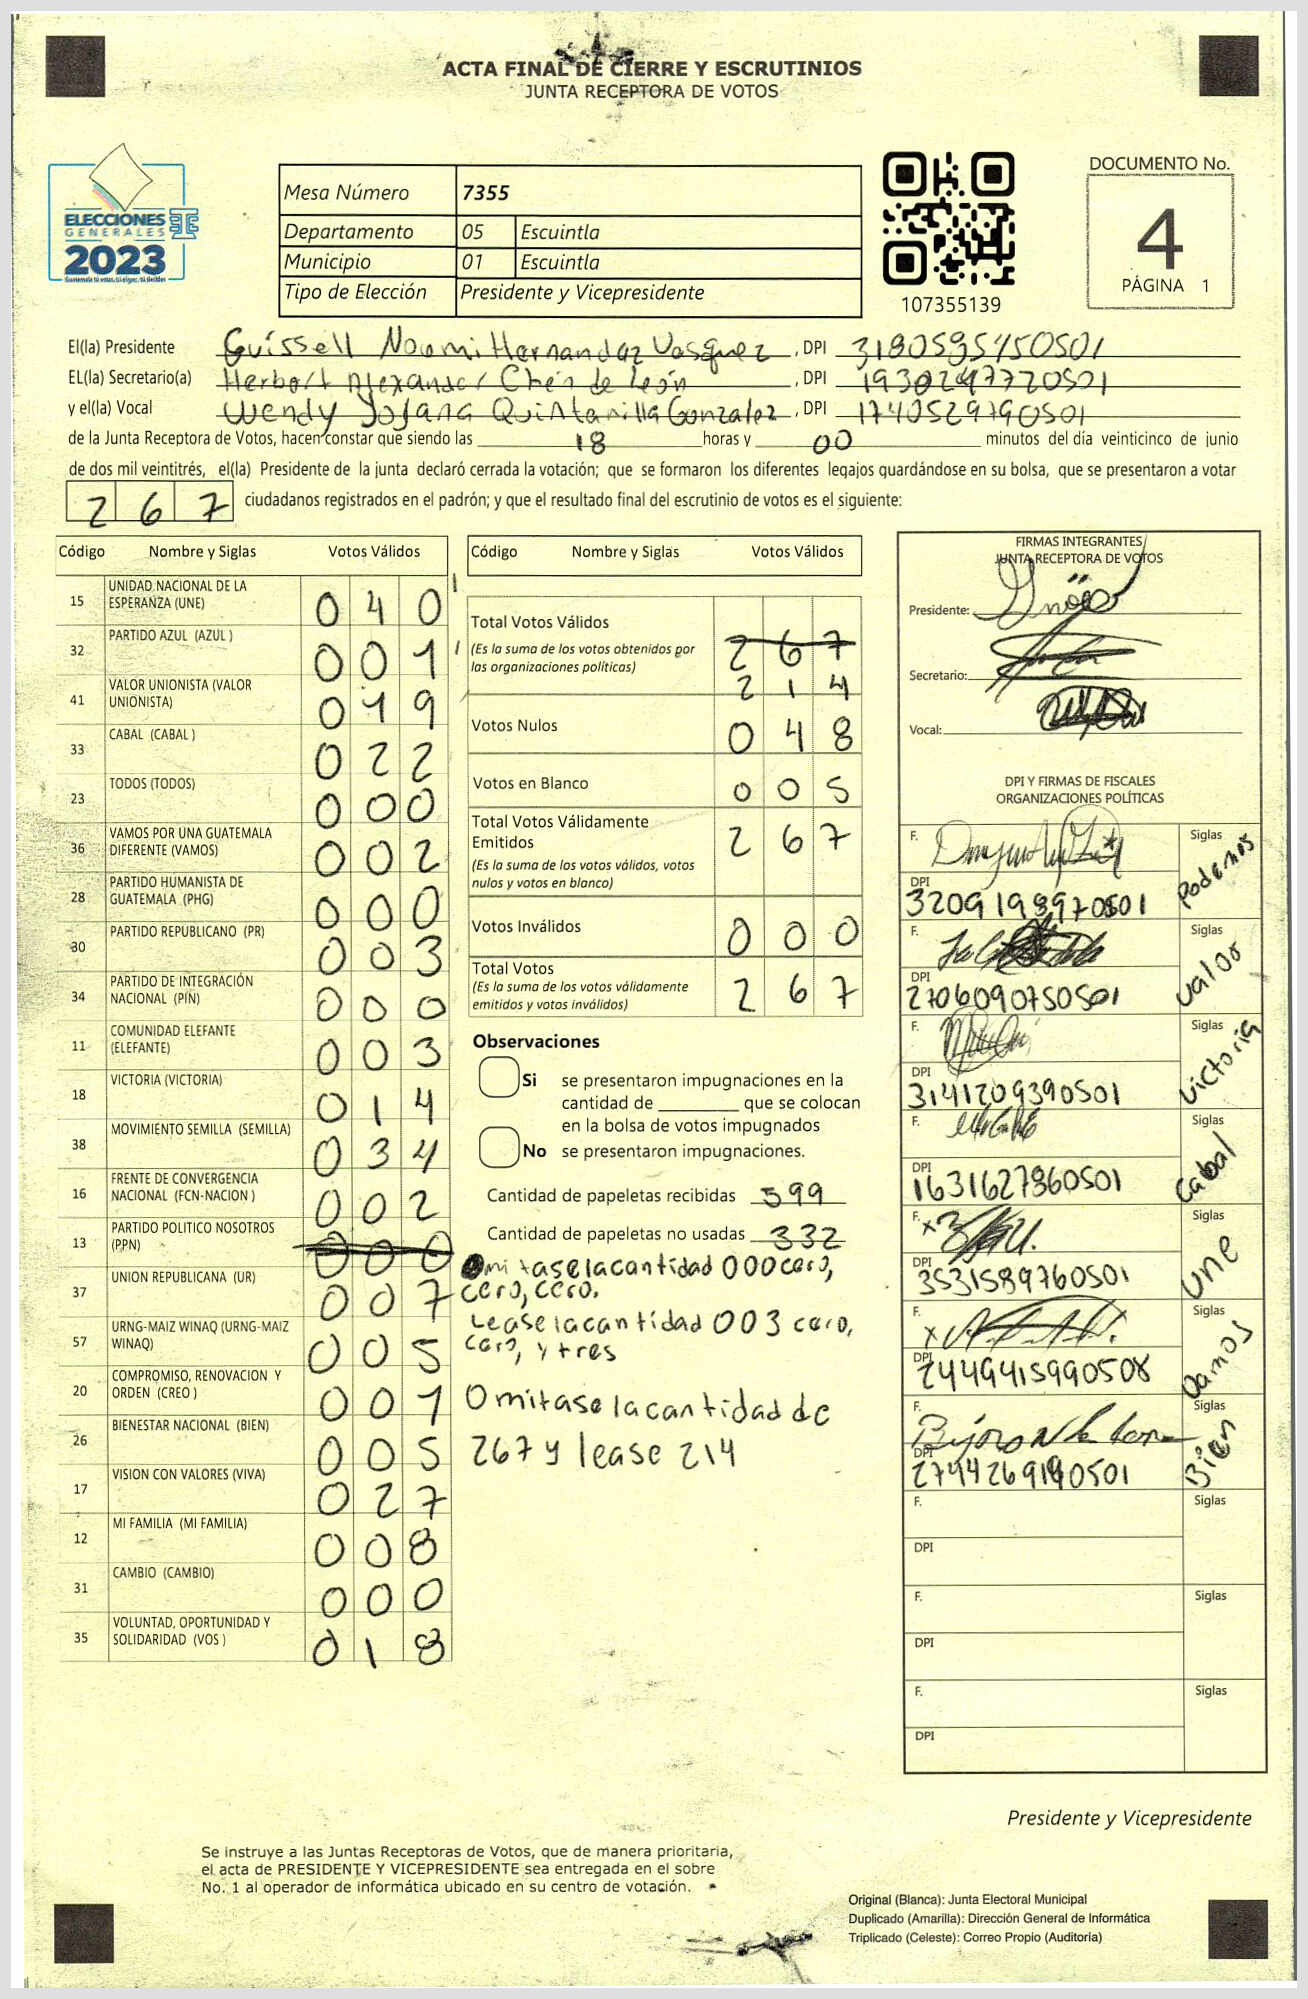 ACTA FINAL DE CIERRE Y ESCRUTINIOS
JUNTA RECEPTORA DE VOTOS
ELECCIONES
GENERALES
2023
Mesa Número 7355
Departamento 05 Escuintla
Municipio 01 Escuintla
Tipo de Elección Presidente y Vicepresidente
107355139
DOCUMENTO No.
4
PÁGINA 1
El(la) Presidente Guissell Noemi Hernandez Vasquez , DPI 3180595450501
EL(la) Secretario(a) Herbert Alexander Chén de león , DPI 1930247720501
y el(la) Vocal Wendy Yojana Quintanilla Gonzalez , DPI 1740529790501
de la Junta Receptora de Votos, hacen constar que siendo las 18 horas y 00 minutos del día veinticinco de junio
de dos mil veintitrés, el(la) Presidente de la junta declaró cerrada la votación; que se formaron los diferentes legajos guardándose en su bolsa, que se presentaron a votar
267 ciudadanos registrados en el padrón; y que el resultado final del escrutinio de votos es el siguiente:
Código Nombre y Siglas Votos Válidos
15 UNIDAD NACIONAL DE LA ESPERANZA (UNE) 040
32 PARTIDO AZUL (AZUL ) 001
41 VALOR UNIONISTA (VALOR UNIONISTA) 019
33 CABAL (CABAL ) 022
23 TODOS (TODOS) 000
36 VAMOS POR UNA GUATEMALA DIFERENTE (VAMOS) 002
28 PARTIDO HUMANISTA DE GUATEMALA (PHG) 000
30 PARTIDO REPUBLICANO (PR) 003
34 PARTIDO DE INTEGRACIÓN NACIONAL (PIN) 000
11 COMUNIDAD ELEFANTE (ELEFANTE) 003
18 VICTORIA (VICTORIA) 014
38 MOVIMIENTO SEMILLA (SEMILLA) 034
16 FRENTE DE CONVERGENCIA NACIONAL (FCN-NACION ) 002
13 PARTIDO POLITICO NOSOTROS (PPN) 000
37 UNION REPUBLICANA (UR) 007
57 URNG-MAIZ WINAQ (URNG-MAIZ WINAQ) 005
20 COMPROMISO, RENOVACION Y ORDEN (CREO ) 001
26 BIENESTAR NACIONAL (BIEN) 005
17 VISION CON VALORES (VIVA) 027
12 MI FAMILIA (MI FAMILIA) 008
31 CAMBIO (CAMBIO) 000
35 VOLUNTAD, OPORTUNIDAD Y SOLIDARIDAD (VOS ) 018
Código Nombre y Siglas Votos Válidos
Total Votos Válidos 267
(Es la suma de los votos obtenidos por
las organizaciones políticas) 214
Votos Nulos 048
Votos en Blanco 005
Total Votos Válidamente
Emitidos 267
(Es la suma de los votos válidos, votos
nulos y votos en blanco)
Votos Inválidos 000
Total Votos
(Es la suma de los votos válidamente
emitidos y votos inválidos) 267
Observaciones
Si se presentaron impugnaciones en la
cantidad de ________ que se colocan
en la bolsa de votos impugnados
No se presentaron impugnaciones.
Cantidad de papeletas recibidas 599
Cantidad de papeletas no usadas 332
Omitase la cantidad 000 cero,
cero, cero.
Lease la cantidad 003 cero,
cero, y tres
Omitase la cantidad de
267 y lease 214
FIRMAS INTEGRANTES
JUNTA RECEPTORA DE VOTOS
Presidente:
Secretario:
Vocal:
DPI Y FIRMAS DE FISCALES
ORGANIZACIONES POLÍTICAS
F. Siglas Podemos
DPI 3209198970501
F. Siglas Valor
DPI 2706090750501
F. Siglas Victoria
DPI 3141209390501
F. Siglas Cabal
DPI 1631627860501
F. Siglas Une
DPI 3531589760501
F. Siglas Vamos
DPI 2449415990508
F. Siglas Bien
DPI 2744269190501
F. Siglas
DPI
F. Siglas
DPI
F. Siglas
DPI
Presidente y Vicepresidente
Se instruye a las Juntas Receptoras de Votos, que de manera prioritaria,
el acta de PRESIDENTE Y VICEPRESIDENTE sea entregada en el sobre
No. 1 al operador de informática ubicado en su centro de votación.
Original (Blanca): Junta Electoral Municipal
Duplicado (Amarilla): Dirección General de Informática
Triplicado (Celeste): Correo Propio (Auditoria)